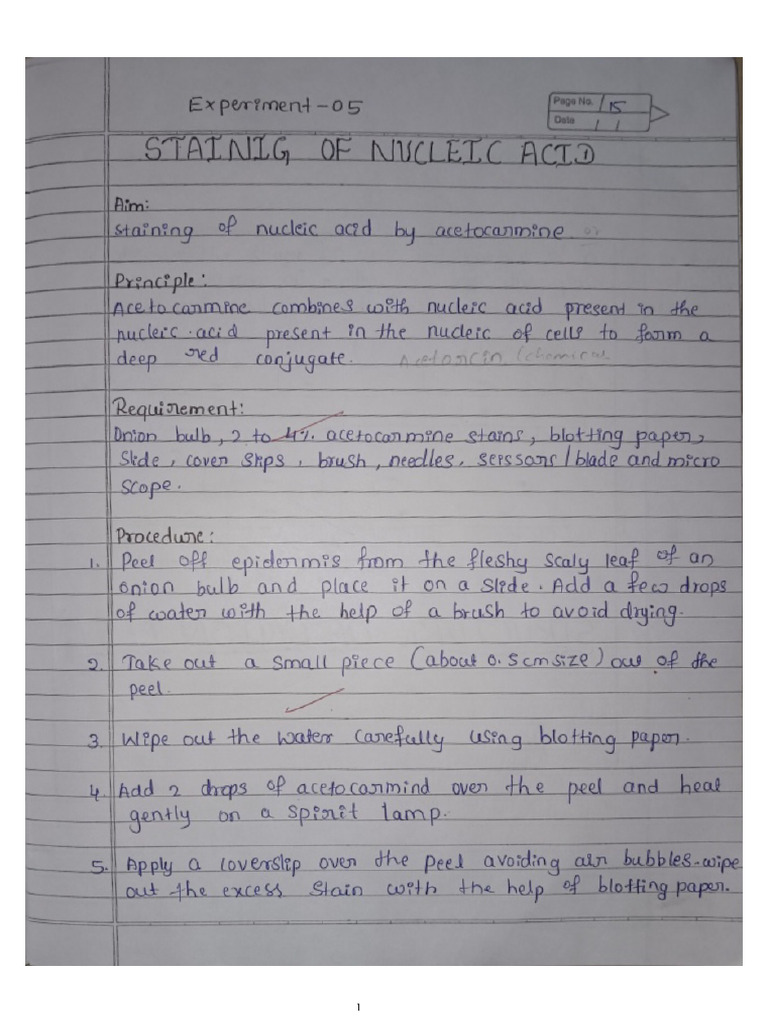 Experiment-05
Page No. 15
Date / /
STAINIG OF NUCLEIC ACID
Aim:
staining of nucleic acid by acetocarmine
Principle:
Aceto carmine combines with nucleic acid present in the
nucleic acid present in the nucleic of cells to form a
deep red conjugate. Acetorcin (chemical
Requirement:
Onion bulb, 2 to 4% acetocarmine stains, blotting paper,
Slide, cover slips, brush, needles, scissors/blade and micro
scope.
Procedure:
1. Peel off epidermis from the fleshy scaly leaf of an
onion bulb and place it on a slide. Add a few drops
of water with the help of a brush to avoid drying.
2. Take out a small piece (about 0.5cm size) out of the
peel.
3. Wipe out the water carefully using blotting paper.
4. Add 2 drops of acetocarmind over the peel and heat
gently on a spirit lamp.
5. Apply a coverslip over the peel avoiding air bubbles-wipe
out the excess stain with the help of blotting paper.
1